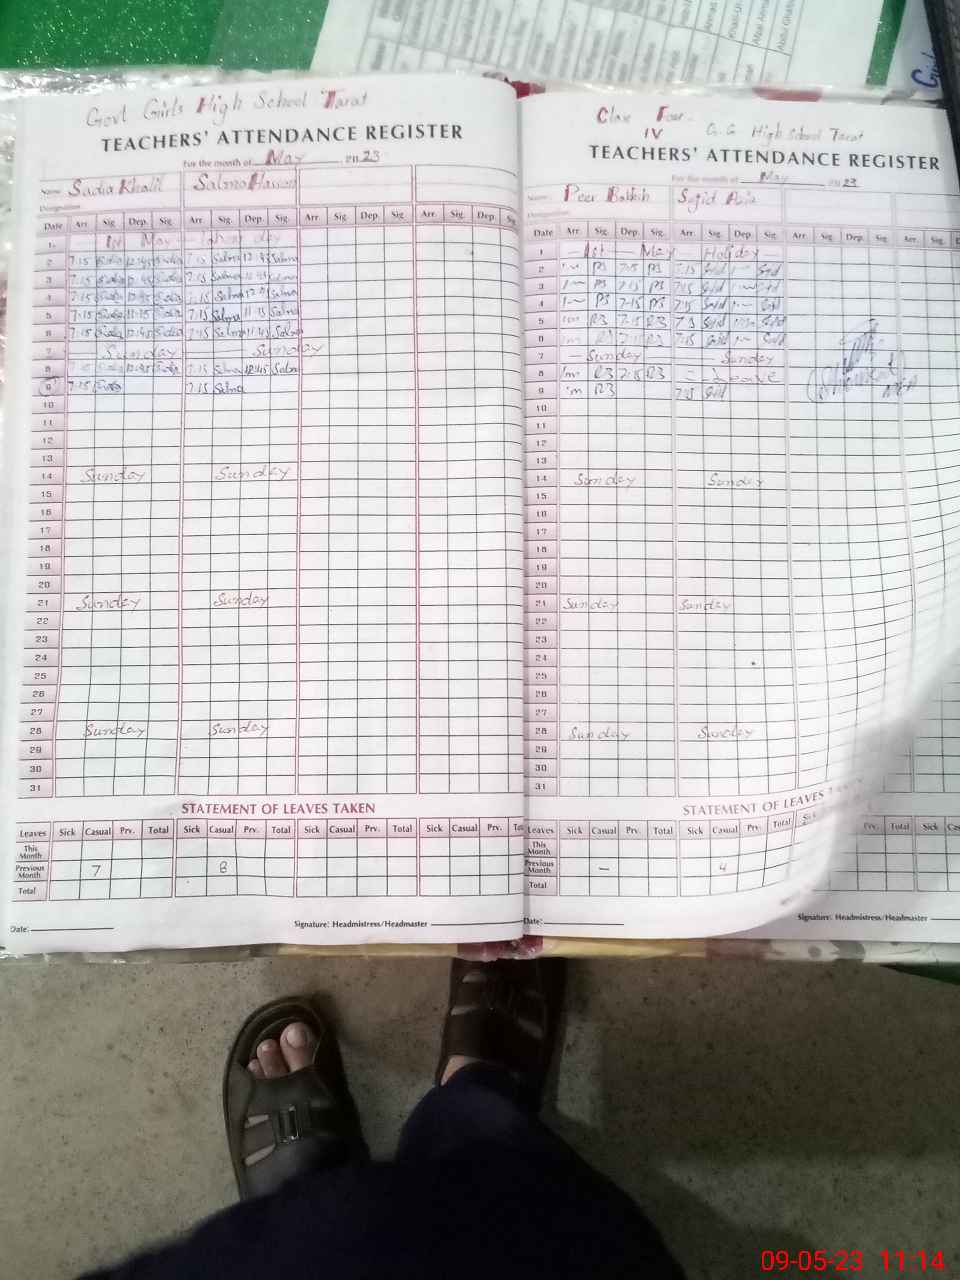 Govt Girls High School Tarat
TEACHERS' ATTENDANCE REGISTER
For the month of May 2023
Name Sadia Khalil Salma Hassan
Designation
Date Arr. Sig. Dep. Sig. Arr. Sig. Dep. Sig. Arr. Sig. Dep. Sig. Arr. Sig. Dep. Sig.
1. 1st May labour day
2 7:15 Sadia 12:45 Sadia 7:15 Salma 12:45 Salma
3 7:15 Sadia 12:45 Sadia 7:15 Salma 12:45 Salma
4 7:15 Sadia 12:45 Sadia 7:15 Salma 12:45 Salma
5 7:15 Sadia 11:15 Sadia 7:15 Salma 11:15 Salma
6 7:15 Sadia 12:45 Sadia 7:15 Salma 12:45 Salma
7 Sunday Sunday
8 7:15 Sadia 12:45 Sadia 7:15 Salma 12:45 Salma
9 7:15 Sadia 7:15 Salma
10
11
12
13
14 Sunday Sunday
15
16
17
18
19
20
21 Sunday Sunday
22
23
24
25
26
27
28 Sunday Sunday
29
30
31
STATEMENT OF LEAVES TAKEN
Leaves Sick Casual Prv. Total Sick Casual Prv. Total Sick Casual Prv. Total Sick Casual Prv.
This Month
Previous Month 7 8
Total
Date: Signature: Headmistress/Headmaster
Class Four
IV G.G High School Tarat
TEACHERS' ATTENDANCE REGISTER
For the month of May 2023
Name: Peer Bakhsh Sajid Aziz
Designation
Date Arr. Sig. Dep. Sig. Arr. Sig. Dep. Sig. Arr. Sig. Dep. Sig. Arr. Sig.
1 1st May Holiday
2 7:15 7:15
3 7:15 7:15
4 7:15 7:15
5
6 7:15 7:15
7 Sunday Sunday
8 7:15 Leave
9 7:15
10
11
12
13
14 Sunday Sunday
15
16
17
18
19
20
21 Sunday Sunday
22
23
24
25
26
27
28 Sunday Sunday
29
30
31
STATEMENT OF LEAVES
Leaves Sick Casual Prv. Total Sick Casual Prv. Total Sick Prv. Total Sick
This Month
Previous Month – 4
Total
Date: Signature: Headmistress/Headmaster
09-05-23 11:14